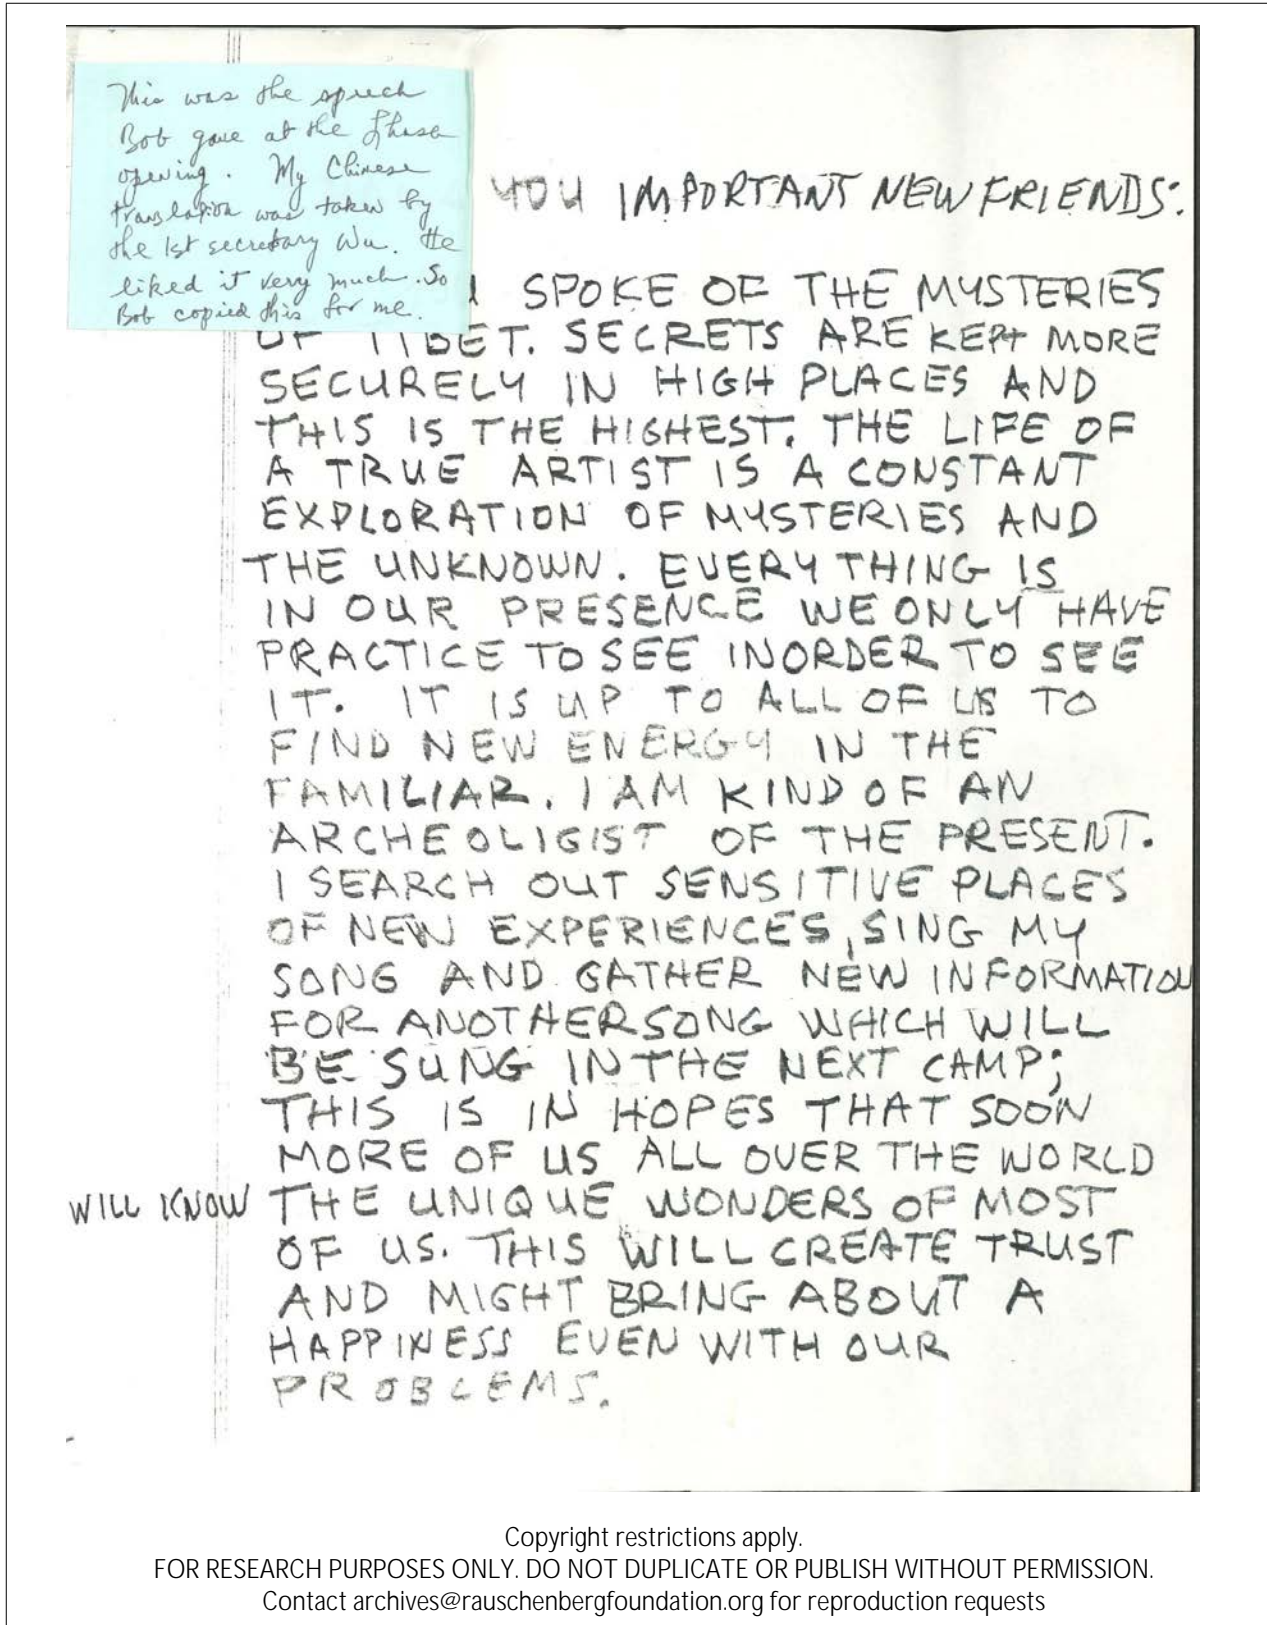 This was the speech
Bob gave at the Lhasa
opening. My Chinese
translation was taken by
the 1st secretary Wu. He
liked it very much. So
Bob copied this for me.
YOU IMPORTANT NEW FRIENDS:
SPOKE OF THE MYSTERIES
OF TIBET. SECRETS ARE KEPT MORE
SECURELY IN HIGH PLACES AND
THIS IS THE HIGHEST. THE LIFE OF
A TRUE ARTIST IS A CONSTANT
EXPLORATION OF MYSTERIES AND
THE UNKNOWN. EVERY THING IS
IN OUR PRESENCE WE ONLY HAVE
PRACTICE TO SEE INORDER TO SEE
IT. IT IS UP TO ALL OF US TO
FIND NEW ENERGY IN THE
FAMILIAR. I AM KIND OF AN
ARCHEOLIGIST OF THE PRESENT.
I SEARCH OUT SENSITIVE PLACES
OF NEW EXPERIENCES, SING MY
SONG AND GATHER NEW INFORMATION
FOR ANOTHER SONG WHICH WILL
BE SUNG IN THE NEXT CAMP;
THIS IS IN HOPES THAT SOON
MORE OF US ALL OVER THE WORLD
WILL KNOW THE UNIQUE WONDERS OF MOST
OF US. THIS WILL CREATE TRUST
AND MIGHT BRING ABOUT A
HAPPINESS EVEN WITH OUR
PROBLEMS.
Copyright restrictions apply.
FOR RESEARCH PURPOSES ONLY. DO NOT DUPLICATE OR PUBLISH WITHOUT PERMISSION.
Contact archives@rauschenbergfoundation.org for reproduction requests